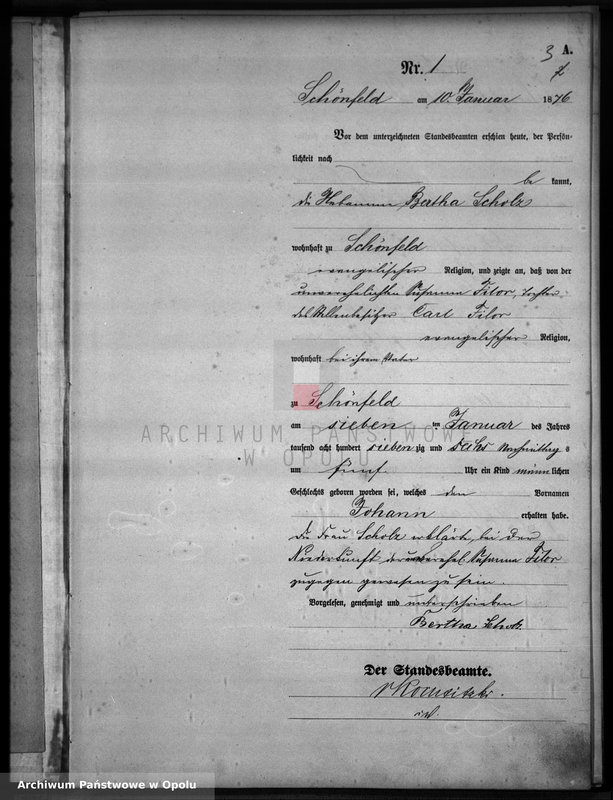 3 A.
Nr. 1
7
Schönfeld am 10. Januar 1876
Vor dem unterzeichneten Standesbeamten erschien heute, der Persön-
lichkeit nach
be kannt,
die Hebamme Bertha Scholz
wohnhaft zu Schönfeld
evangelischer Religion, und zeigte an, daß von der
unverehelichten Susanna Tilor, Tochter
des Stellenbesitzer Carl Tilor
evangelischer Religion,
wohnhaft bei ihrem Vater
zu Schönfeld
am sieben ten Januar des Jahres
tausend acht hundert sieben zig und sechs Vormittag s
um fünf Uhr ein Kind männ lichen
Geschlechts geboren worden sei, welches den Vornamen
Johann erhalten habe.
Die Frau Scholz erklärte, bei der
Niederkunft der unverehel. Susanna Tilor
zugegen gewesen zu sein.
Vorgelesen, genehmigt und unterschrieben
Bertha Scholz
Der Standesbeamte.
ARCHIWUM PAŃSTWOWE
W OPOLU
Archiwum Państwowe w Opolu